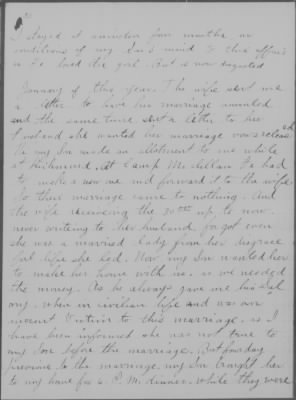 I stayed at
conditions of my Son's mind to this affair
as he loved the girl. But is now disgusted
January of this year, The wife sent me
a letter to have her marriage annuled
and the same time sent a letter to her
husband she wanted her marriage vows released
As my Son made an allotment to me while
at Richmond. At Camp Mc Lellan he had
to make a new one and forward it to the wife
So their marriage came to nothing. And
the wife receiving the 30th up to now.
never writing to her husband, forgot even
she was a married lady from her disgrace
ful life she had. Now my Son wanted her
to make her home with us. as we needed
the money. As he always gave me his sal
ary. when in civilian life and was an
inocent Victim to this marriage, as I
have been informed she was not true to
my Son before the marriage. But four day
previous to the marriage my Son brought her
to my home for a P.M. dinner. While they were